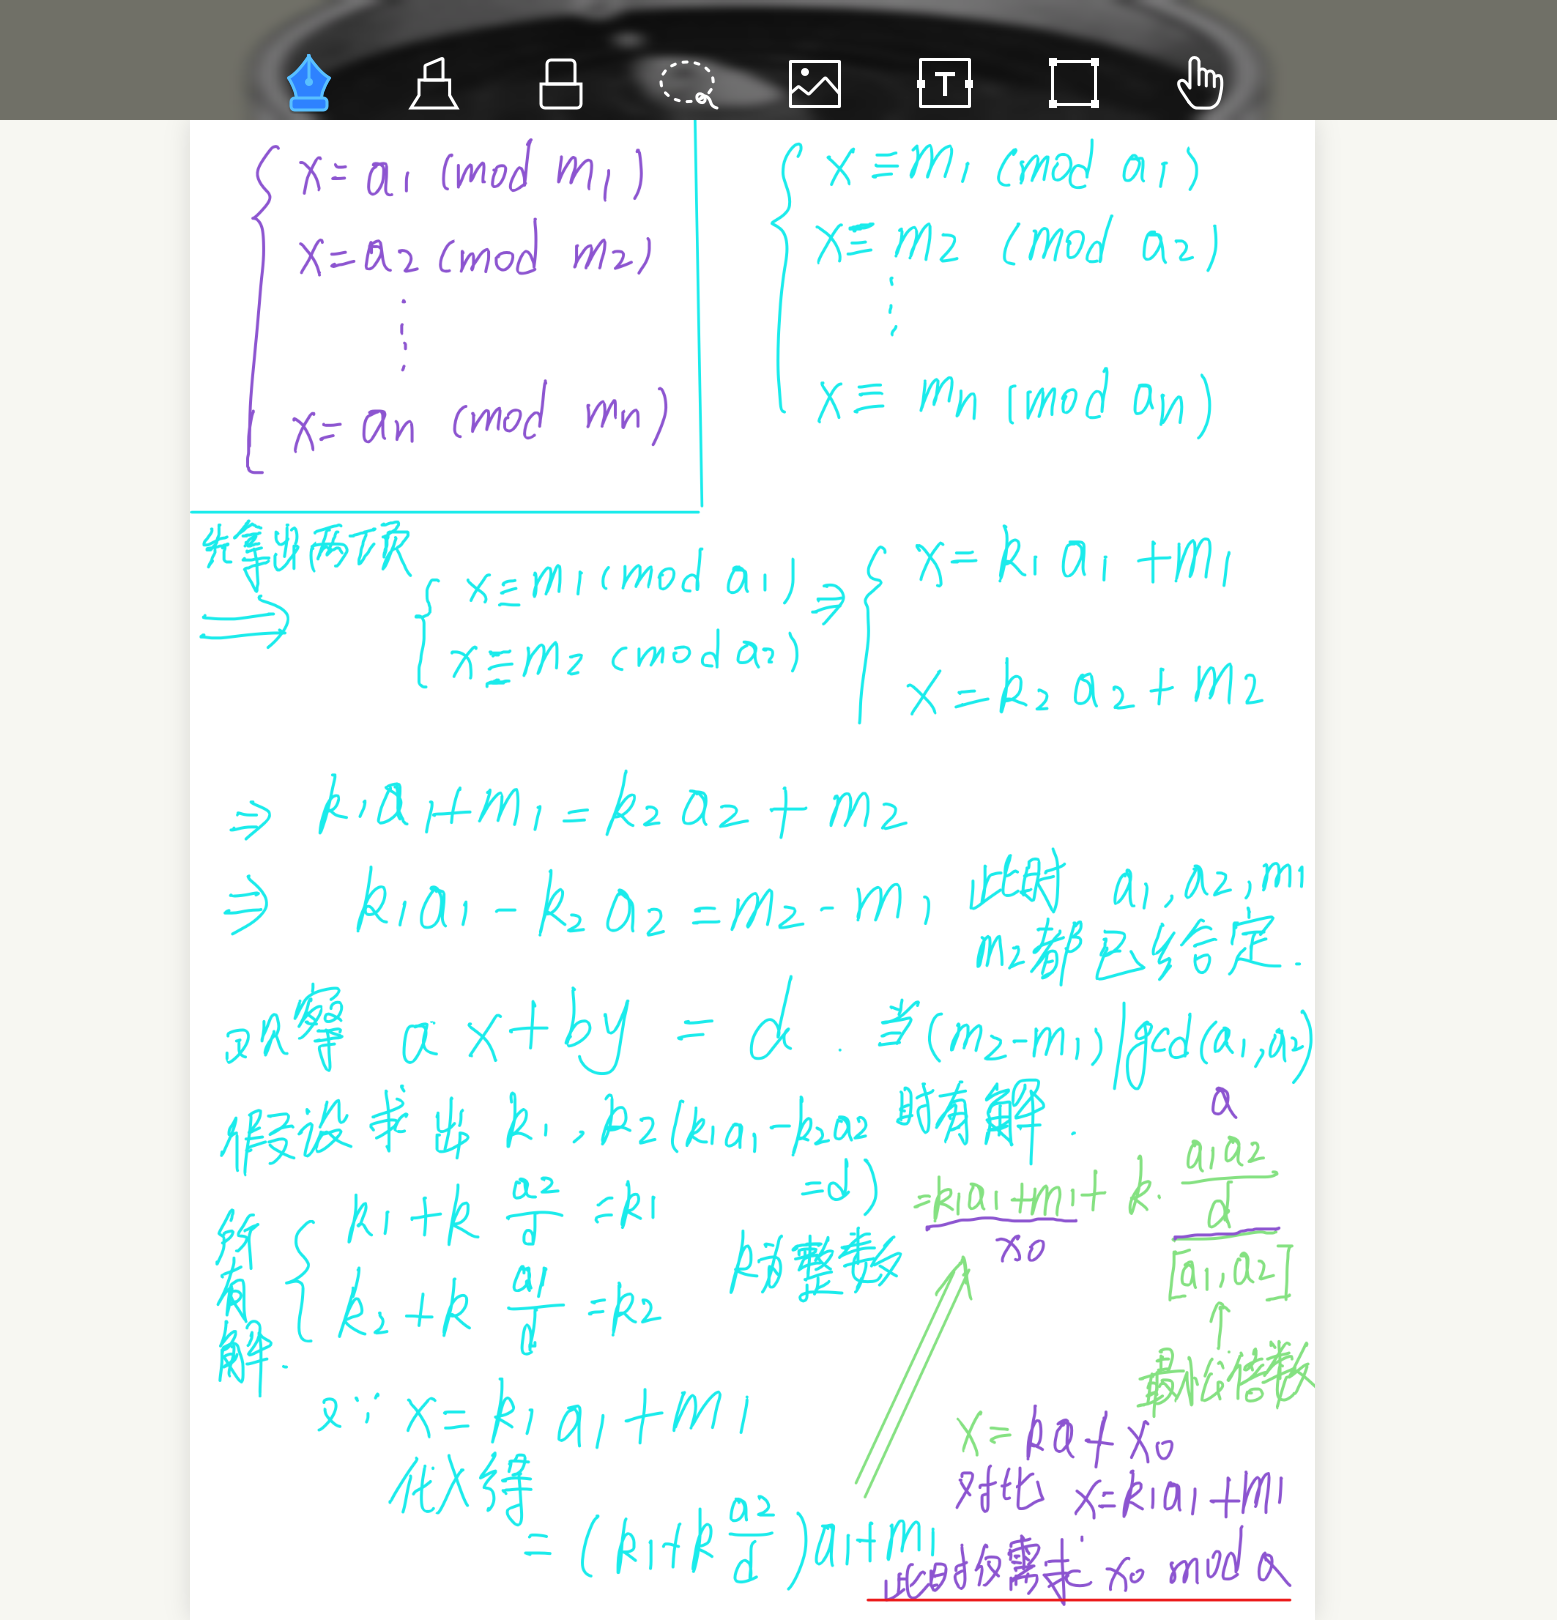 x = a1 (mod m1)
x = a2 (mod m2)
⋮
x = an (mod mn)
x ≡ m1 (mod a1)
x ≡ m2 (mod a2)
⋮
x ≡ mn (mod an)
先拿出两项
⇒
x ≡ m1 (mod a1)
x ≡ m2 (mod a2)
⇒
x = k1 a1 + m1
x = k2 a2 + m2
⇒ k1a1+m1 = k2 a2 + m2
⇒ k1a1 - k2a2 = m2 - m1 此时 a1, a2, m1
m2都已经给定.
观察 ax+by = d. 当(m2-m1)|gcd(a1,a2)
时有解.
假设求出 k1, k2 (k1a1-k2a2
=d)
所有解.
k1+k a2/d = k1
k2+k a1/d = k2
k为整数
又∵ x = k1 a1 + m1
代入得
= (k1+k a2/d)a1+m1
=k1a1+m1+ k· a1a2/d
x0
a
[a1,a2]
↑
最小公倍数
x = ka + x0
对比 x=k1a1+m1
此时仅需求 x0 mod a